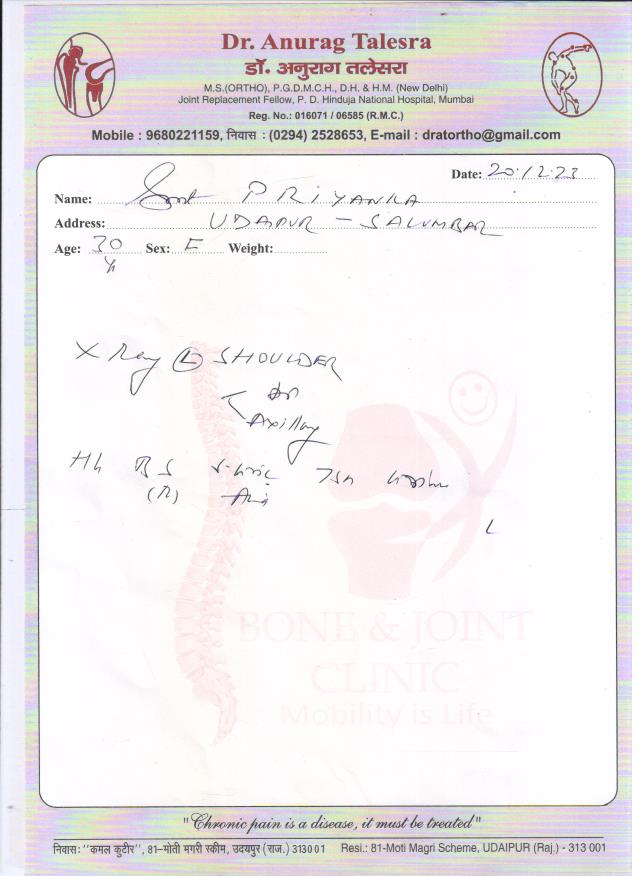 Dr. Anurag Talesra
डॉ. अनुराग तलेसरा
M.S.(ORTHO), P.G.D.M.C.H., D.H. & H.M. (New Delhi)
Joint Replacement Fellow, P. D. Hinduja National Hospital, Mumbai
Reg. No.: 016071 / 06585 (R.M.C.)
Mobile : 9680221159, निवास : (0294) 2528653, E-mail : dratortho@gmail.com
Date: 20.12.23
Name: Smt PRIYANKA
Address: UDAIPUR - SALUMBAR
Age: 30 Yr Sex: F Weight:
X Ray (L) SHOULDER
AP
Axillary
Hb BS S. Uric TSH
(R) Acid
BONE & JOINT
CLINIC
Mobility is Life
"Chronic pain is a disease, it must be treated"
निवास: "कमल कुटीर", 81-मोती मगरी स्कीम, उदयपुर (राज.) 313001 Resi.: 81-Moti Magri Scheme, UDAIPUR (Raj.) - 313 001